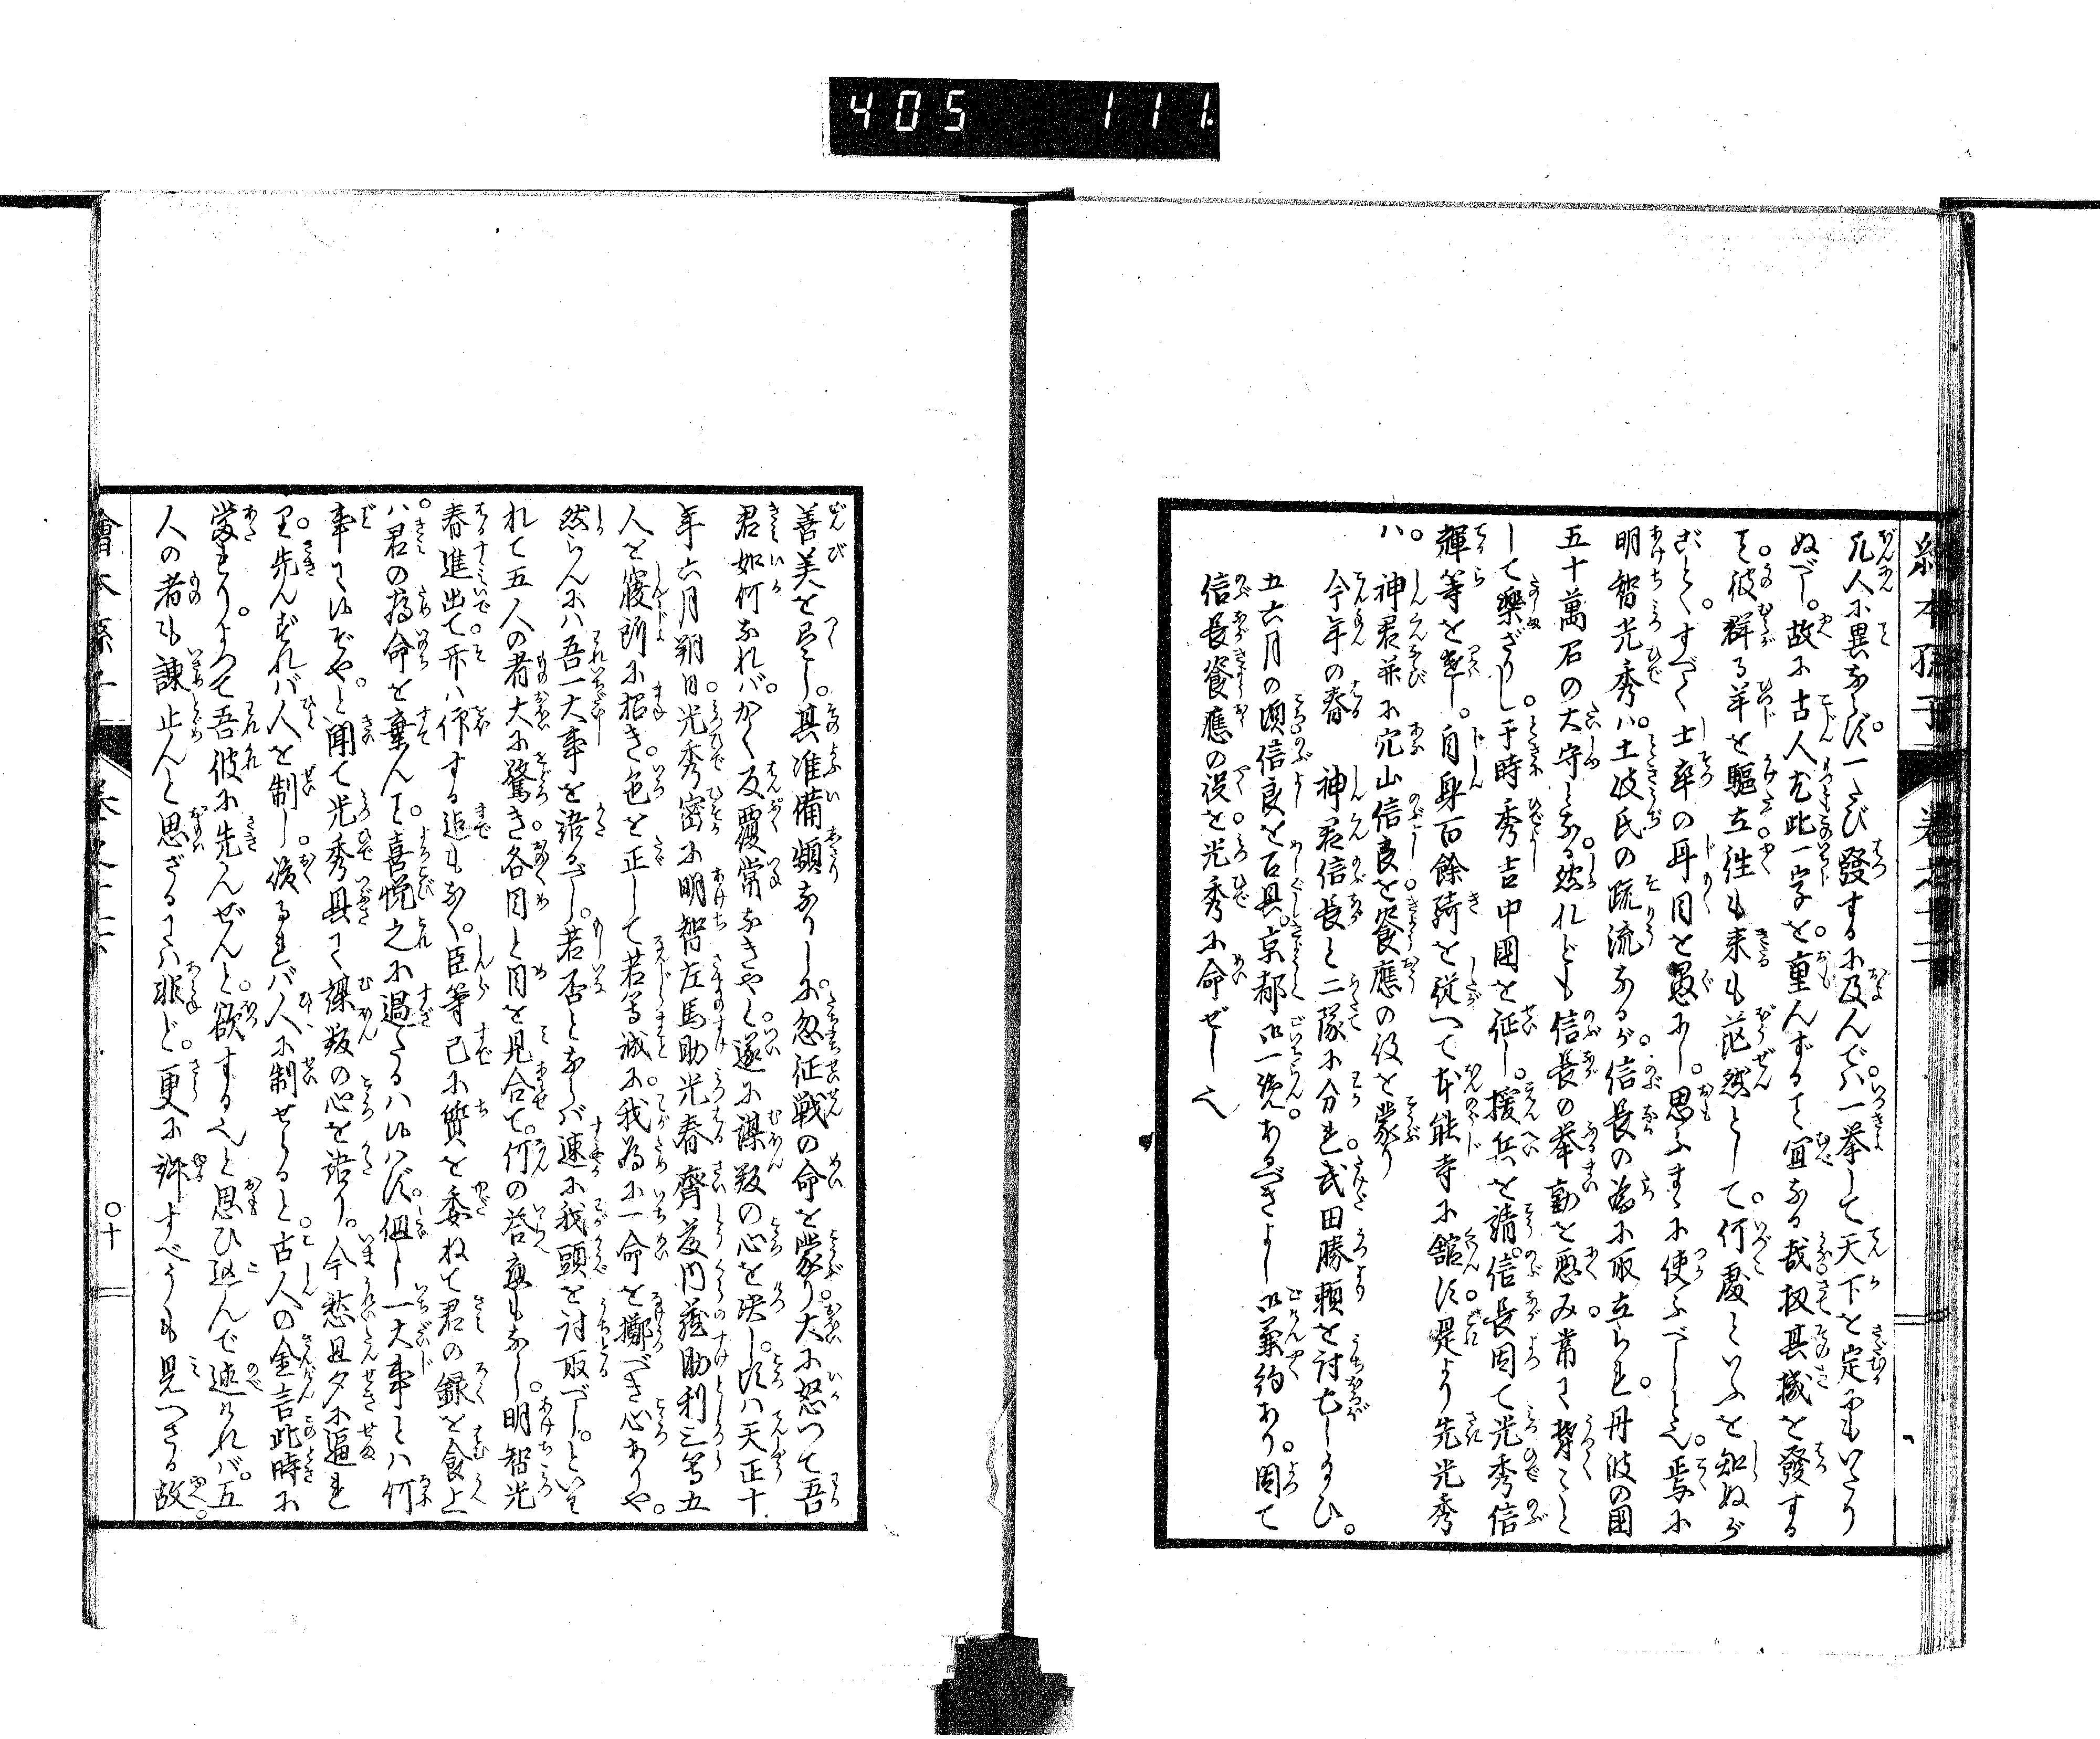 405 111
凡人に異ならず。一たび發するに及んでハ一挙して天下を定るにいたり
ぬべし。故に古人尤此一字を重んずるも宜なる哉扨其機を發する
も。彼群る羊を驅立往も来るも茫然として。何處といふを知ぬが
ごとく。すべく士卒の耳目を愚にし。思ふまゝに使ふべしと也。爰に
明智光秀ハ。土岐氏の疏流なるが。信長の為に取立られ。丹波の国
五十萬石の大守となる。然れども信長の挙動を悪み常に欝こと
して樂ざりし。于時秀吉中國を征し。援兵を請。信長因て光秀信
輝等を遣し。自身百餘騎を従へて本能寺に舘す。是より先光秀
ハ。神君並に穴山信良を饗應の役を蒙り
今年の春 神君信長と二隊に分れ。武田勝頼を討亡し給ひ。
五六月の頃信良を召具。京都御一覧。あるべきよし御兼約あり。因て
信長饗應の役を光秀に命ぜし也
善美を尽し。其准備頻なりしに。忽征戦の命を蒙り。大に怒つて吾
君如何なれバ。かく反覆常なきやと。遂に謀叛の心を决し。頃ハ天正十
年六月朔日。光秀密に明智左馬助光春齊藤内藏助利三等五
人を寝所に招き。色を正して若等誠に。我為に一命を擲べき心ありや。
然らんにハ吾一大事を語るべし。若否とならバ速に我頭を討取べし。といは
れて五人の者大に驚き。各目と目を見合せ。何の答應もなし。明智光
春進出て。夫ハ仰する迄もなく。臣等已に質を委ねて君の録を食上
ハ。君の為命を棄んこと。喜悦之に過たるハ候ハず。但し一大事とハ何
事にて候ぞや。と聞て光秀具に謀叛の心を語り。今愁旦夕に逼れ
り。先んずれバ人を制し。後るれバ人に制せらると。古人の金言此時に
當れり。よつて吾彼に先んぜんと。欲する也と思ひ込んで述けれバ。五
人の者も諌止んと思ざるにハ非ど。更に許すべうも見へざる故。